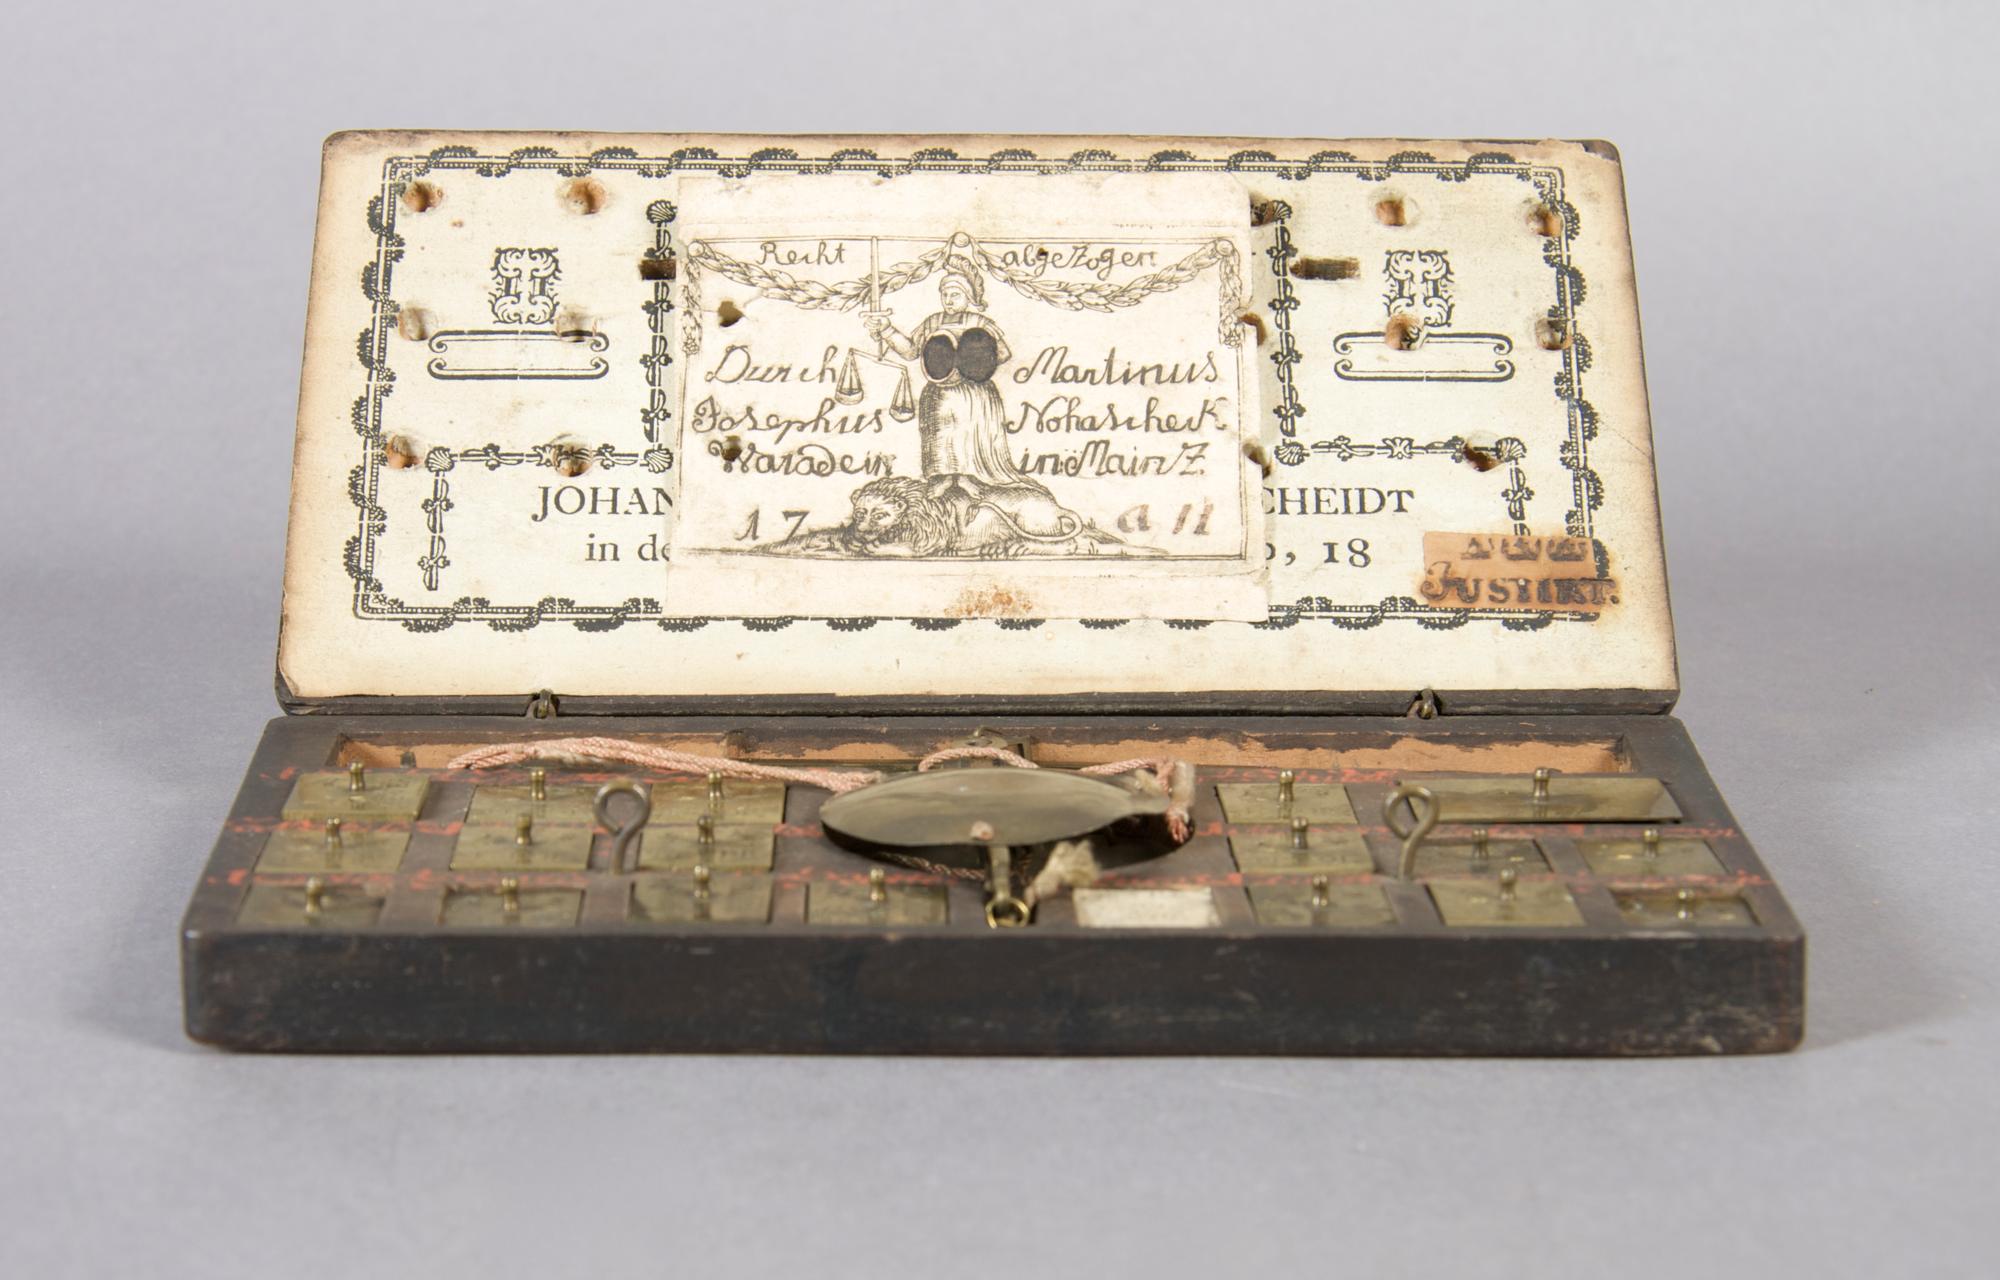 Recht abgezogen
Durch Martinus
Josephus Nohascheck
Waradein in Mainz.
17 a 11
JOHAN CHEIDT
in de , 18
JUSTIRT.